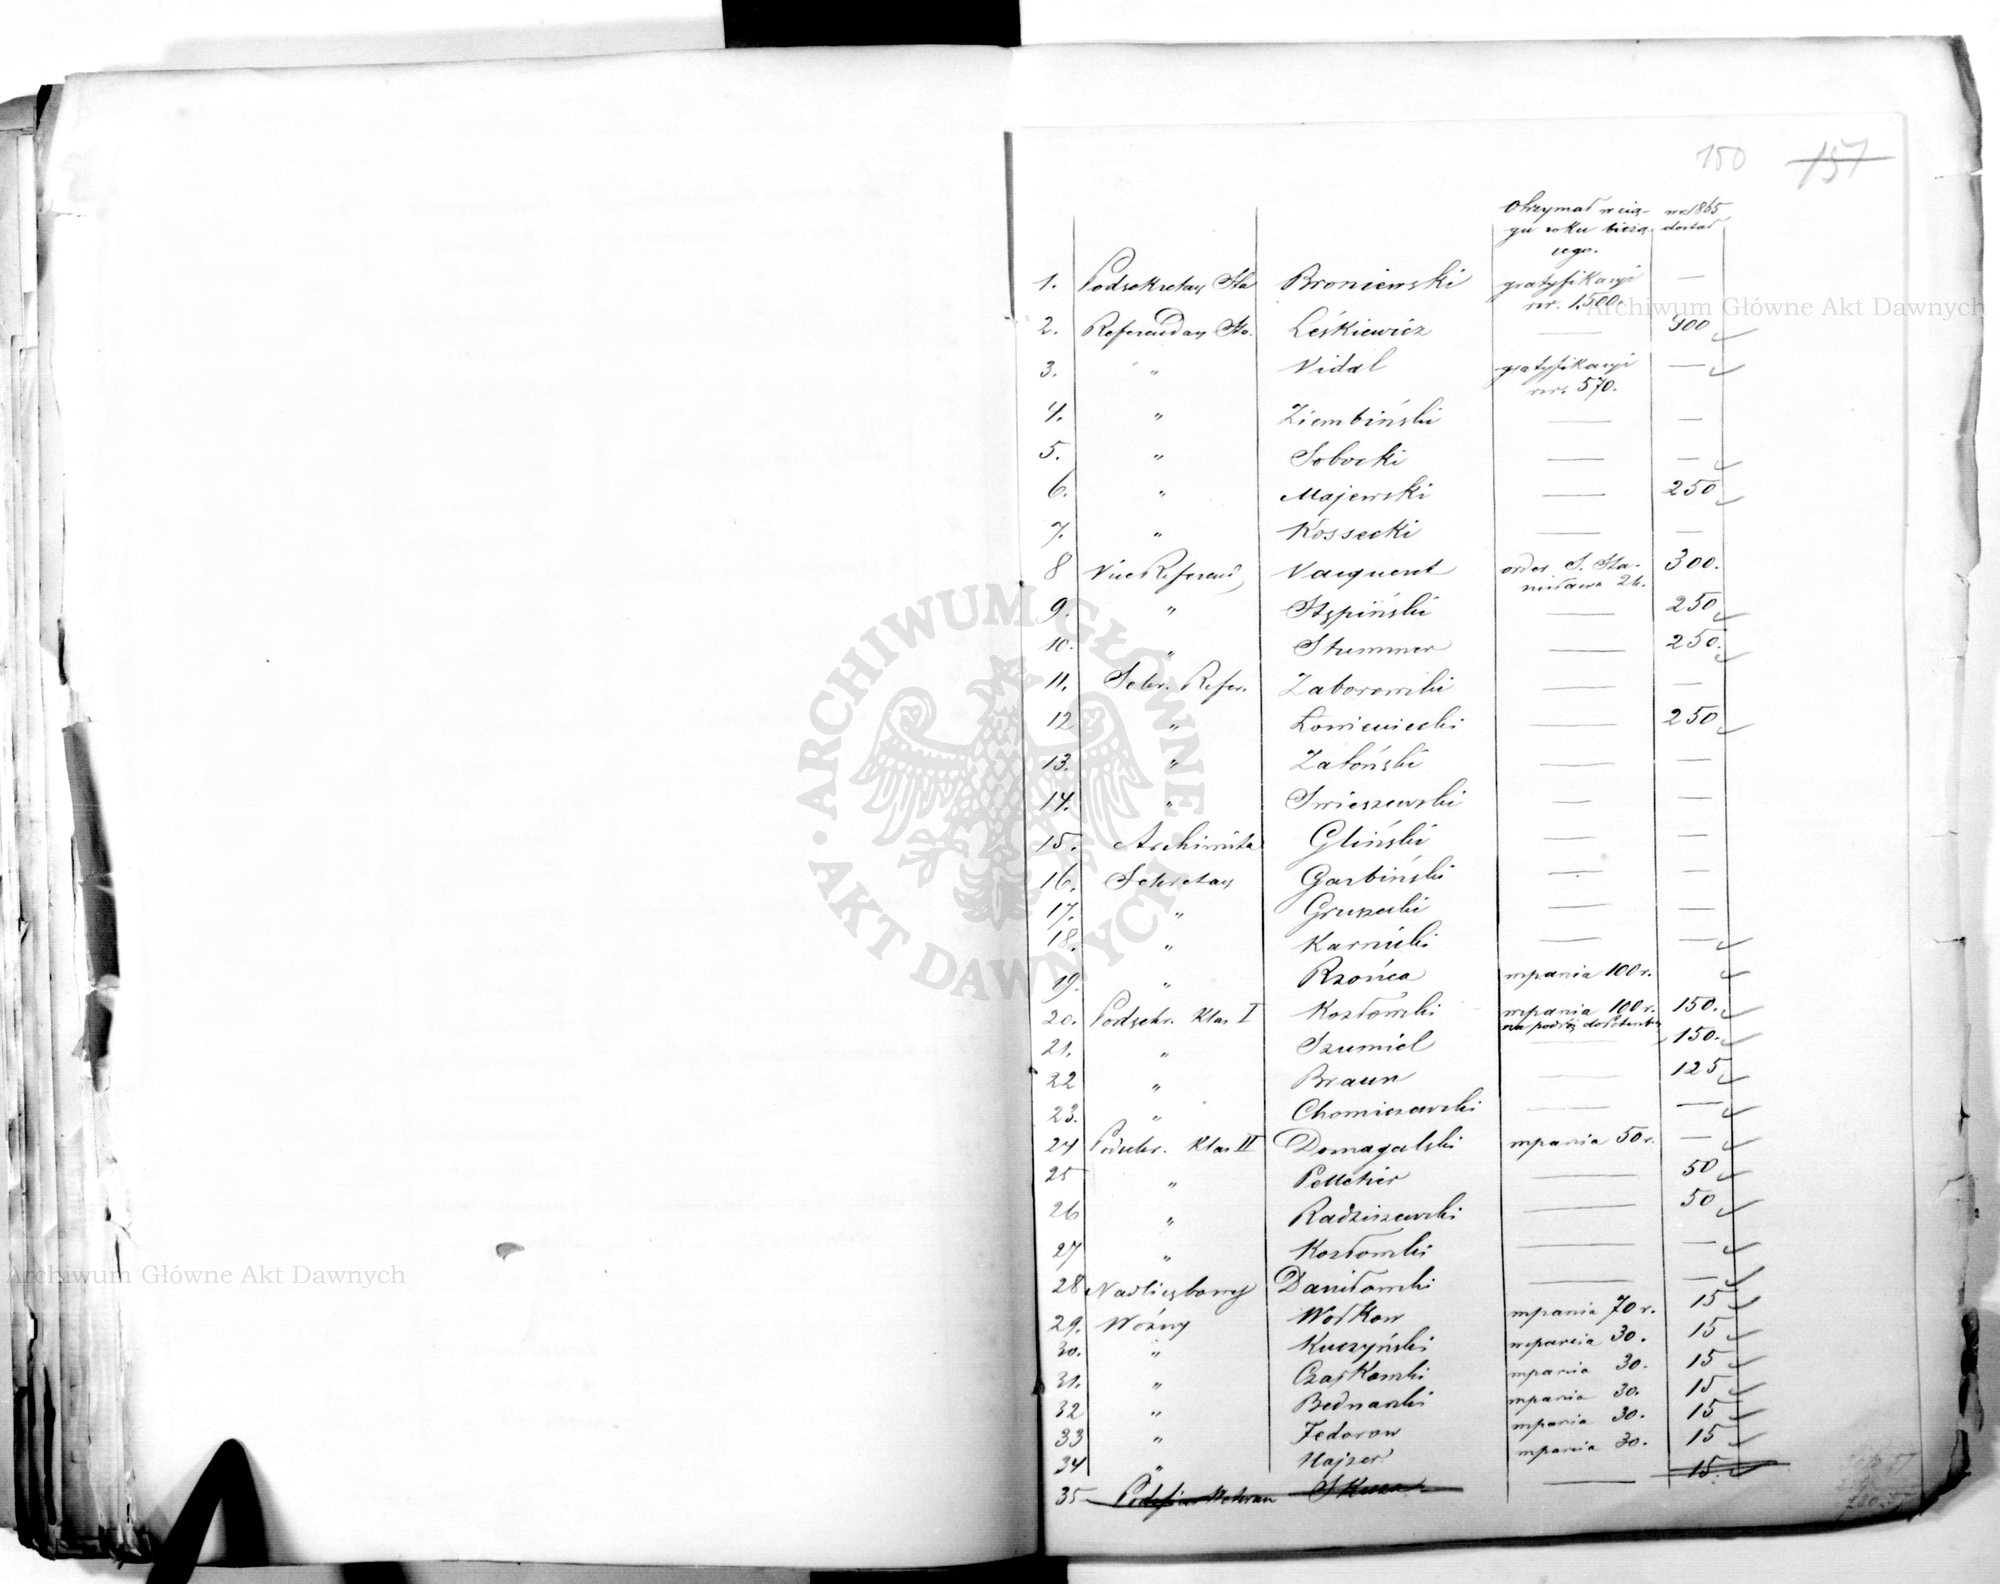 150 157
Otrzymał w cią- w r. 1865
gu roku bieżą dostał
cego.
1. Podsekretarz Sta Broniewski gratyfikacyi —
rsr. 1,500.
2. Referendarz Sta. Leśkiewicz — 400
3. " " Vidal gratyfikacyi —
rsr. 570.
4. " Ziembiński — —
5. " Sobocki — —
6. " Majewski — 250
7. " Kossecki — —
8 Vice Referend, Vacquent order S. Sta- 300.
nisława 2 k.
9. " Stępiński — 250
10. " Stummer — 250.
11. Sekr. Refer. Zaborowski — —
12 " Łowieniecki — 250
13. " Zatoński — —
14. " Swieszewski — —
15. Archiwista Gliński — —
16. Sekretarz Garbiński — —
17. " Gruszecki — —
18. " Karnicki — —
19. " Rzońca wparcia 100 r.
20. Podsekr. Klas I Kozłowski wparcia 100 r. 150.
na podróż do
21. " Szumiel — 150.
22 " Braun — 125
23. " Chomiszewski — —
24 Podsekr. Klas II Domagalski wparcia 50 r. —
25 " Pelletier — 50
26 " Radziszewski — 50
27 " Kozłowski — —
28 Nadliczbowy Daniłowski — —
29. Woźny Wołkow wparcia 70 r. 15
30. " Kuczyński wparcia 30. 15
31. " Czajkowski wparcia 30. 15
32 " Bednarski wparcia 30. 15
33 " Fedorow wparcia 30. 15
34 " Hajzer wparcia 30. 15
35 Podoficer Weteran Skuza — 15.
Archiwum Główne Akt Dawnych
Archiwum Główne Akt Dawnych
ARCHIWUM GŁÓWNE AKT DAWNYCH